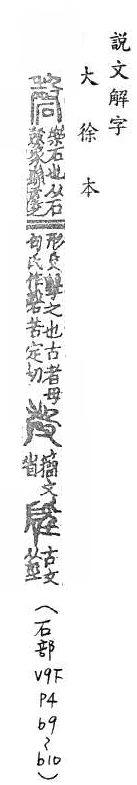 說文解字
大徐本
磬 樂石也从石殸象縣虡之形殳擊之也古者母句氏作磬苦定切 殸 籀文省 硜 古文从巠
(石部V9下P4b9~b10)